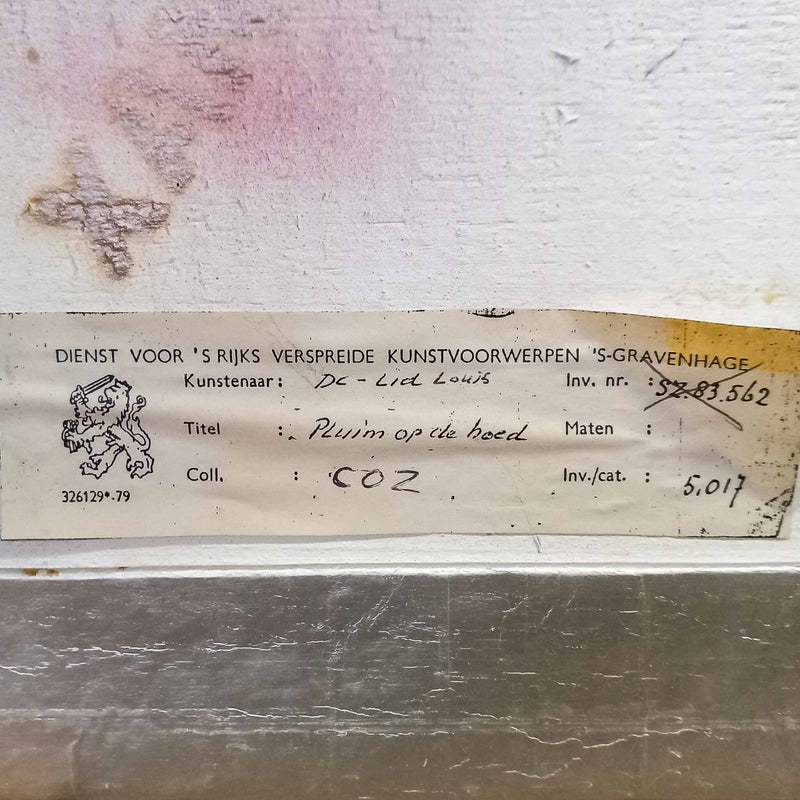 DIENST VOOR 'S RIJKS VERSPREIDE KUNSTVOORWERPEN 'S-GRAVENHAGE
Kunstenaar: De - Lid Louis Inv. nr. : SZ.83.562
Titel : Pluim op de hoed Maten :
Coll. : COZ Inv./cat. : 5.017
326129*-79